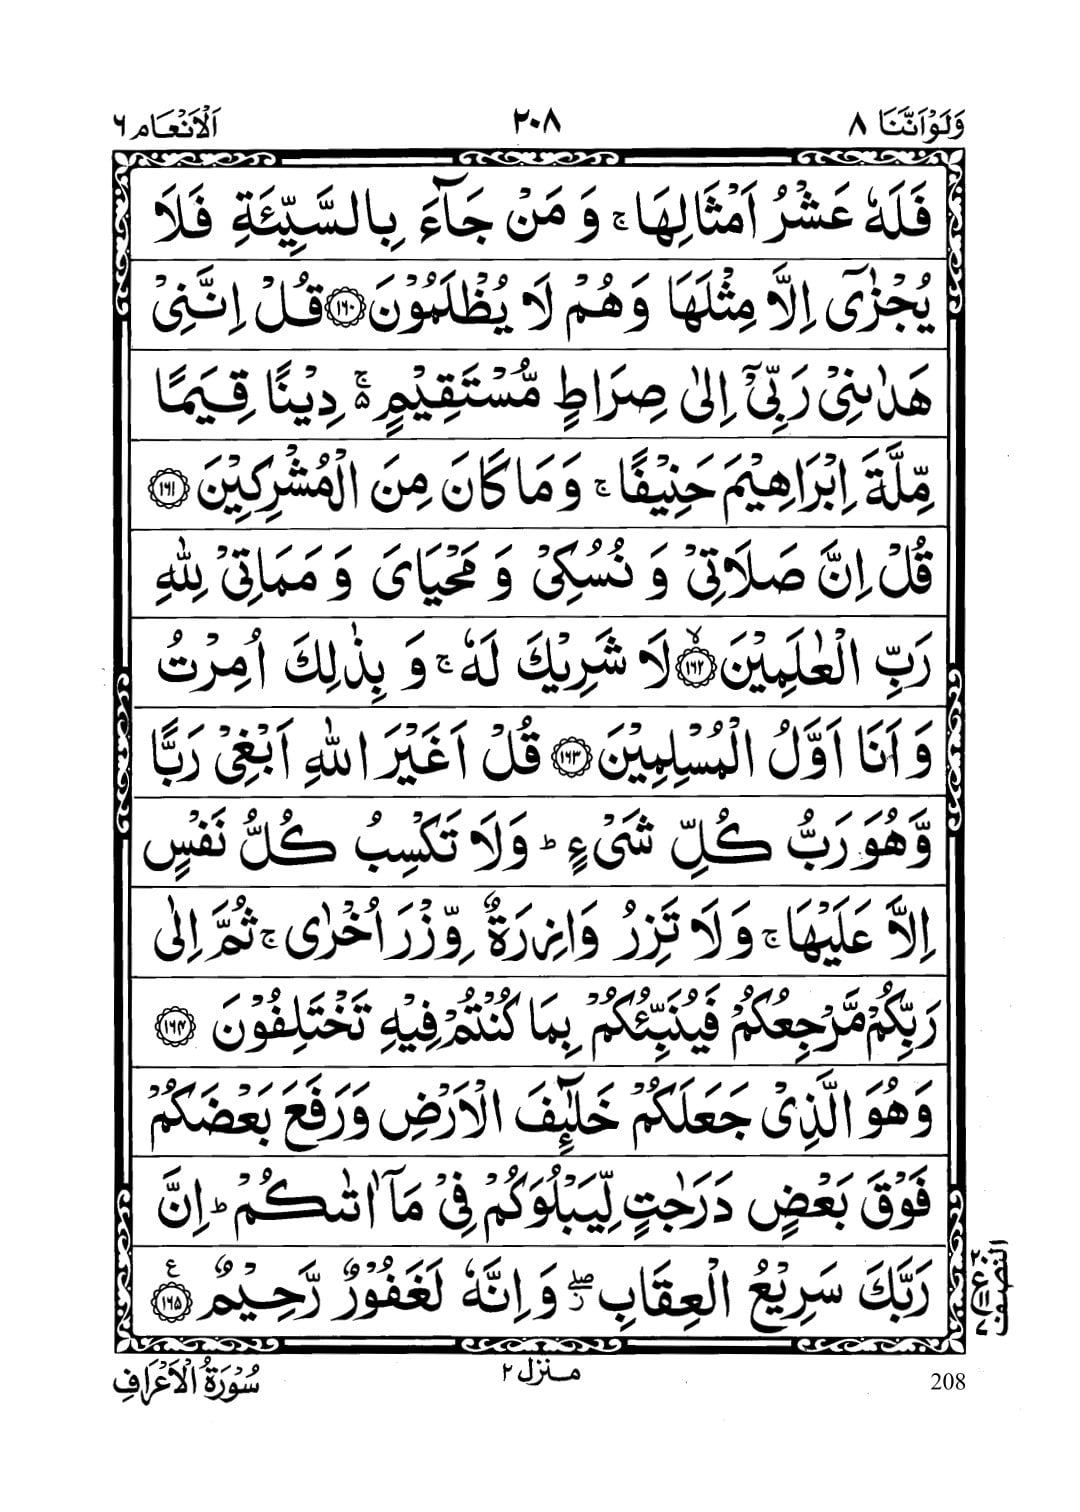 وَلَوْاَنَّنَا ٨ ٢٠٨ اَلْاَنْعَام ٦
فَلَهٗ عَشْرُ اَمْثَالِهَا ۚ وَ مَنْ جَآءَ بِالسَّيِّئَةِ فَلَا
يُجْزٰٓى اِلَّا مِثْلَهَا وَهُمْ لَا يُظْلَمُوْنَ ﴿١٦٠﴾ قُلْ اِنَّنِيْ
هَدٰىنِيْ رَبِّيْٓ اِلٰى صِرَاطٍ مُّسْتَقِيْمٍ ۚ۬ دِيْنًا قِيَمًا
مِّلَّةَ اِبْرَاهِيْمَ حَنِيْفًا ۚ وَمَا كَانَ مِنَ الْمُشْرِكِيْنَ ﴿١٦١﴾
قُلْ اِنَّ صَلَاتِيْ وَ نُسُكِيْ وَ مَحْيَايَ وَ مَمَاتِيْ لِلّٰهِ
رَبِّ الْعٰلَمِيْنَ ﴿١٦٢﴾ۙ لَا شَرِيْكَ لَهٗ ۚ وَ بِذٰلِكَ اُمِرْتُ
وَ اَنَا اَوَّلُ الْمُسْلِمِيْنَ ﴿١٦٣﴾ قُلْ اَغَيْرَ اللّٰهِ اَبْغِيْ رَبًّا
وَّهُوَ رَبُّ كُلِّ شَيْءٍ ؕ وَلَا تَكْسِبُ كُلُّ نَفْسٍ
اِلَّا عَلَيْهَا ۚ وَلَا تَزِرُ وَازِرَةٌ وِّزْرَ اُخْرٰى ۚ ثُمَّ اِلٰى
رَبِّكُمْ مَّرْجِعُكُمْ فَيُنَبِّئُكُمْ بِمَا كُنْتُمْ فِيْهِ تَخْتَلِفُوْنَ ﴿١٦٤﴾
وَهُوَ الَّذِيْ جَعَلَكُمْ خَلٰٓئِفَ الْاَرْضِ وَرَفَعَ بَعْضَكُمْ
فَوْقَ بَعْضٍ دَرَجٰتٍ لِّيَبْلُوَكُمْ فِيْ مَآ اٰتٰىكُمْ ؕ اِنَّ
رَبَّكَ سَرِيْعُ الْعِقَابِ ۖز وَاِنَّهٗ لَغَفُوْرٌ رَّحِيْمٌ ﴿١٦٥﴾ ع
النصف
سُوْرَةُ الْاَعْرَافِ منزل ٢ 208